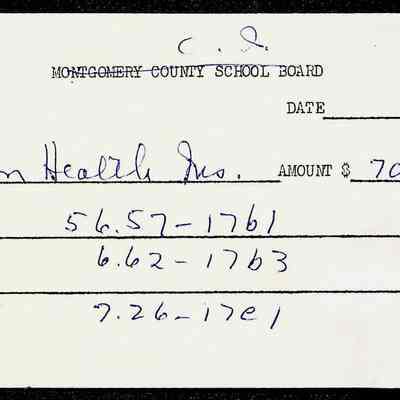 C. I.
MONTGOMERY COUNTY SCHOOL BOARD
DATE
n Health Ins. AMOUNT $ 70
56.57-17b1
6.62-17b3
7.26-17e1